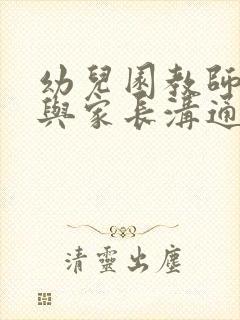 幼兒園教師
與家長溝通
清靈出塵